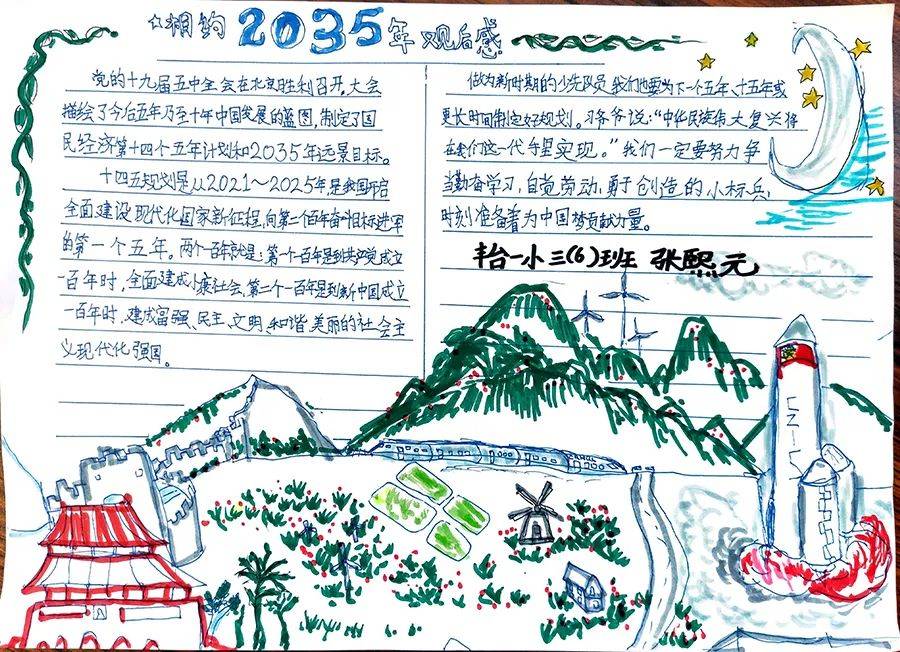 相约2035年观后感
党的十九届五中全会在北京胜利召开。大会
描绘了今后五年乃至十年中国发展的蓝图,制定了国
民经济第十四个五年计划和2035年远景目标。
十四五规划是从2021~2025年是我国开启
全面建设现代化国家新征程,向第二个百年奋斗目标进军
的第一个五年。两个一百年就是:第一个一百年是到共产党成立
一百年时,全面建成小康社会,第二个一百年是到新中国成立
一百年时,建成富强、民主、文明、和谐、美丽的社会主
义现代化强国。
做为新时期的少先队员,我们也要为下一个五年、十五年或
更长时间制定好规划。习爷爷说:“中华民族伟大复兴将
在我们这一代手里实现。”我们一定要努力争
当勤奋学习,自觉劳动,勇于创造的小标兵,
时刻准备着为中国梦贡献力量。
丰台一小三(6)班 张熙元